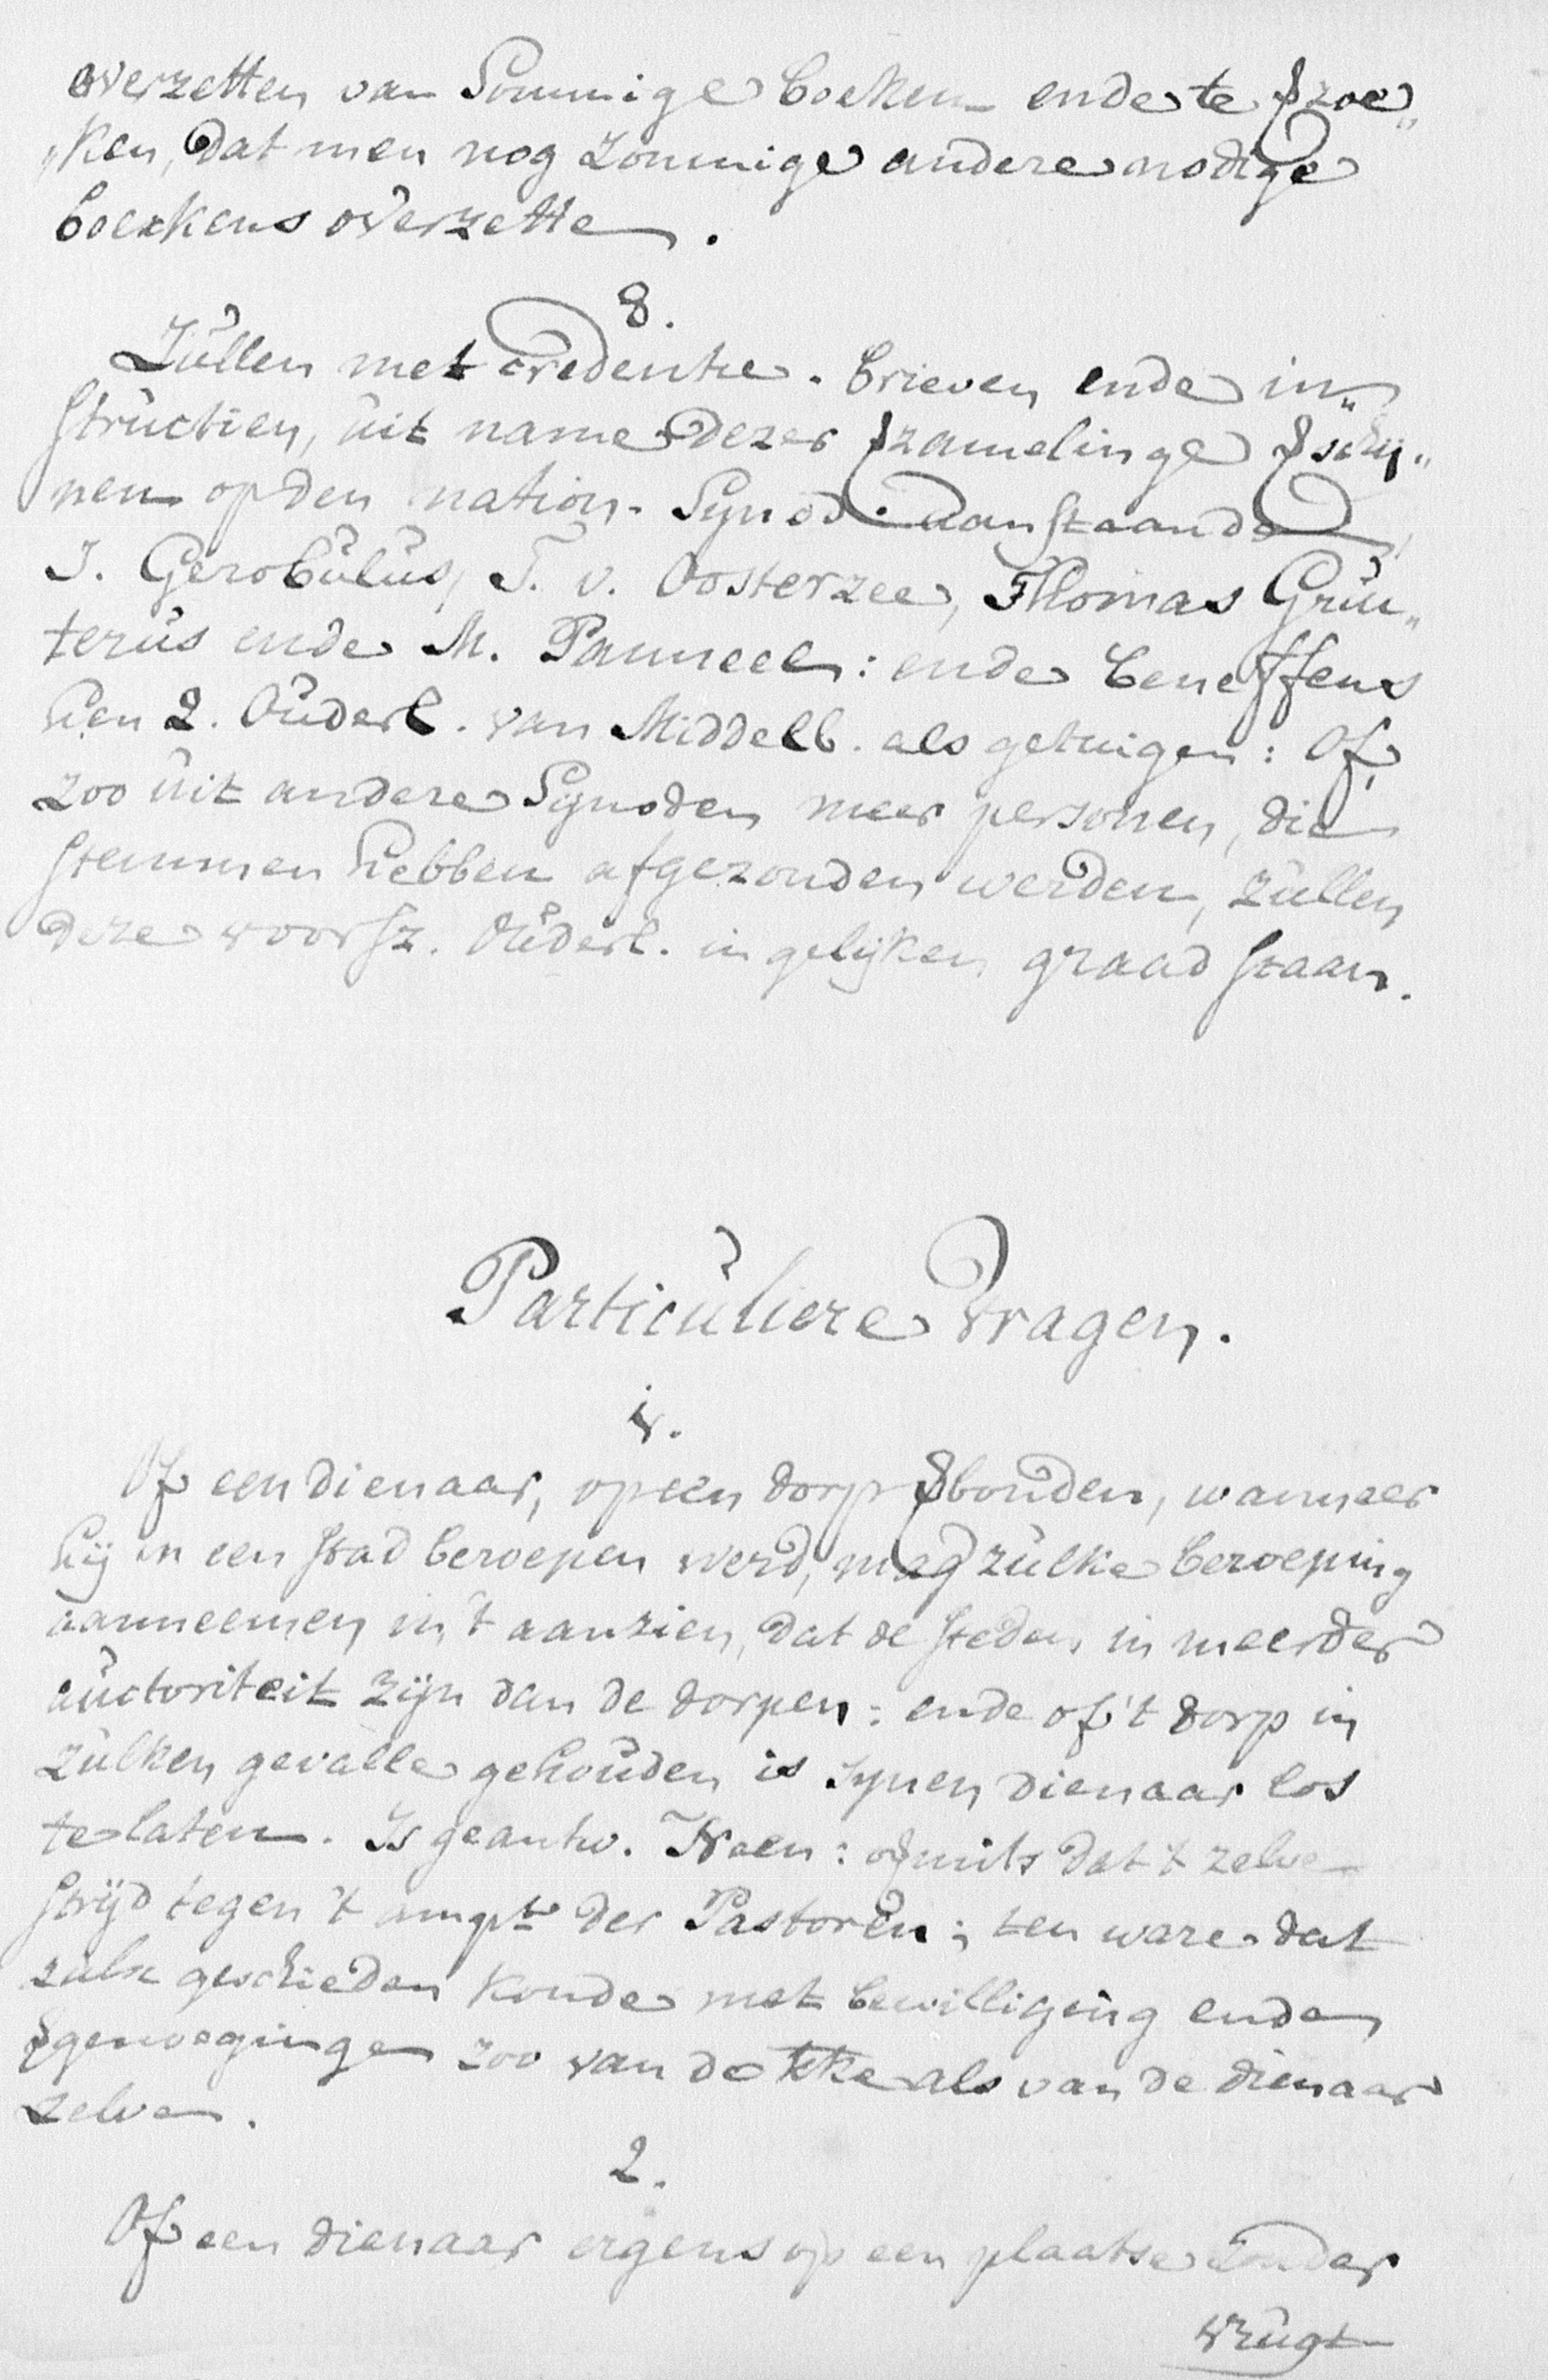 overzetten van Sommige boeken ende te ꝟzoe„
„ken, dat men nog zommige andere nodige
boexkens overzette.
8.
Zullen met credentie. brieven ende in„
structien, uit name dezer ꝟzamelinge ꝟschij„
nen op den nation. Synod. aanstaande,
J. Gerobulus, T. v. Oosterzee, Thomas Gruu„
terus ende M. Panneel: ende beneffens
hen 2. Ouderl. van Middelb. als getuigen: Of,
zoo uit andere Synoden meer personen, die
stemmen hebben afgezonden werden, zullen
deze voorsz. Ouderl. in gelijken graad staan.
Particuliere Vragen.
1.
Of een dienaar, op een dorp ꝟbonden, wanneer
hij in een stad beroepen werd, mag zulke beroeping
aanneemen in 't aanzien, dat de steden in meerder
auctoriteit zijn dan de dorpen: ende of 't dorp in
zulken gevalle gehouden is synen dienaar los
te laten. Is geantw. Neen: mits dat 't zelve
strijd tegen 't ampt der Pastoren; ten ware dat
zulx geschieden konde met bewilliging ende
ꝟgenoeginge zoo van de kke als van de dienaar
zelve.
2.
Of een dienaar ergens op een plaatse zonder
vrugt